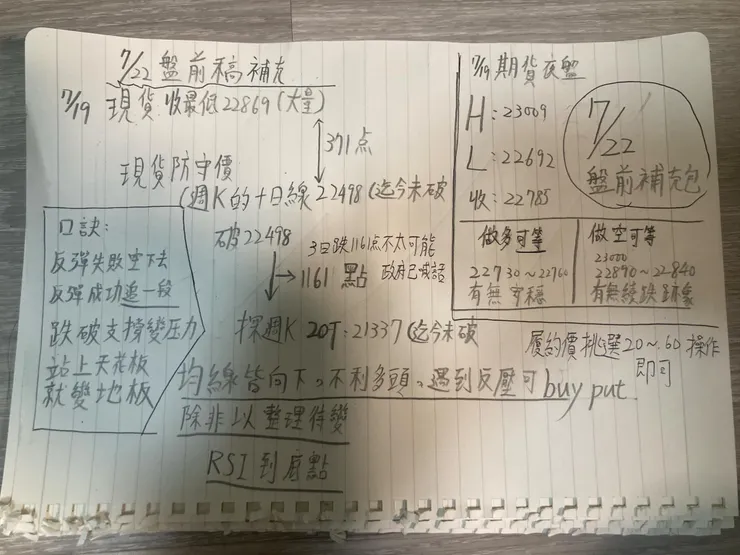 7/22 盤前稿補充
7/19 現貨 收最低 22869 (大量)
371点
現貨防守價
(週K的十日線 22498 (迄今未破
破 22498
3日跌1161点不太可能
政府已喊話
1161 點
探週K 20T:21337 (迄今未破
均線皆向下。不利多頭。遇到反壓可 buy put.
除非以整理待變
RSI 到底點
口訣:
反彈失敗空下去
反彈成功追一段
跌破支撐變压力
站上天花板
就變地板
7/19 期貨夜盤
H:23009
L:22692
收:22785
7/22
盤前補充包
做多可等
22730~22760
有無守穩
做空可等
23000
22890~22840
有無續跌跡象
履約價挑選20~60操作
即可